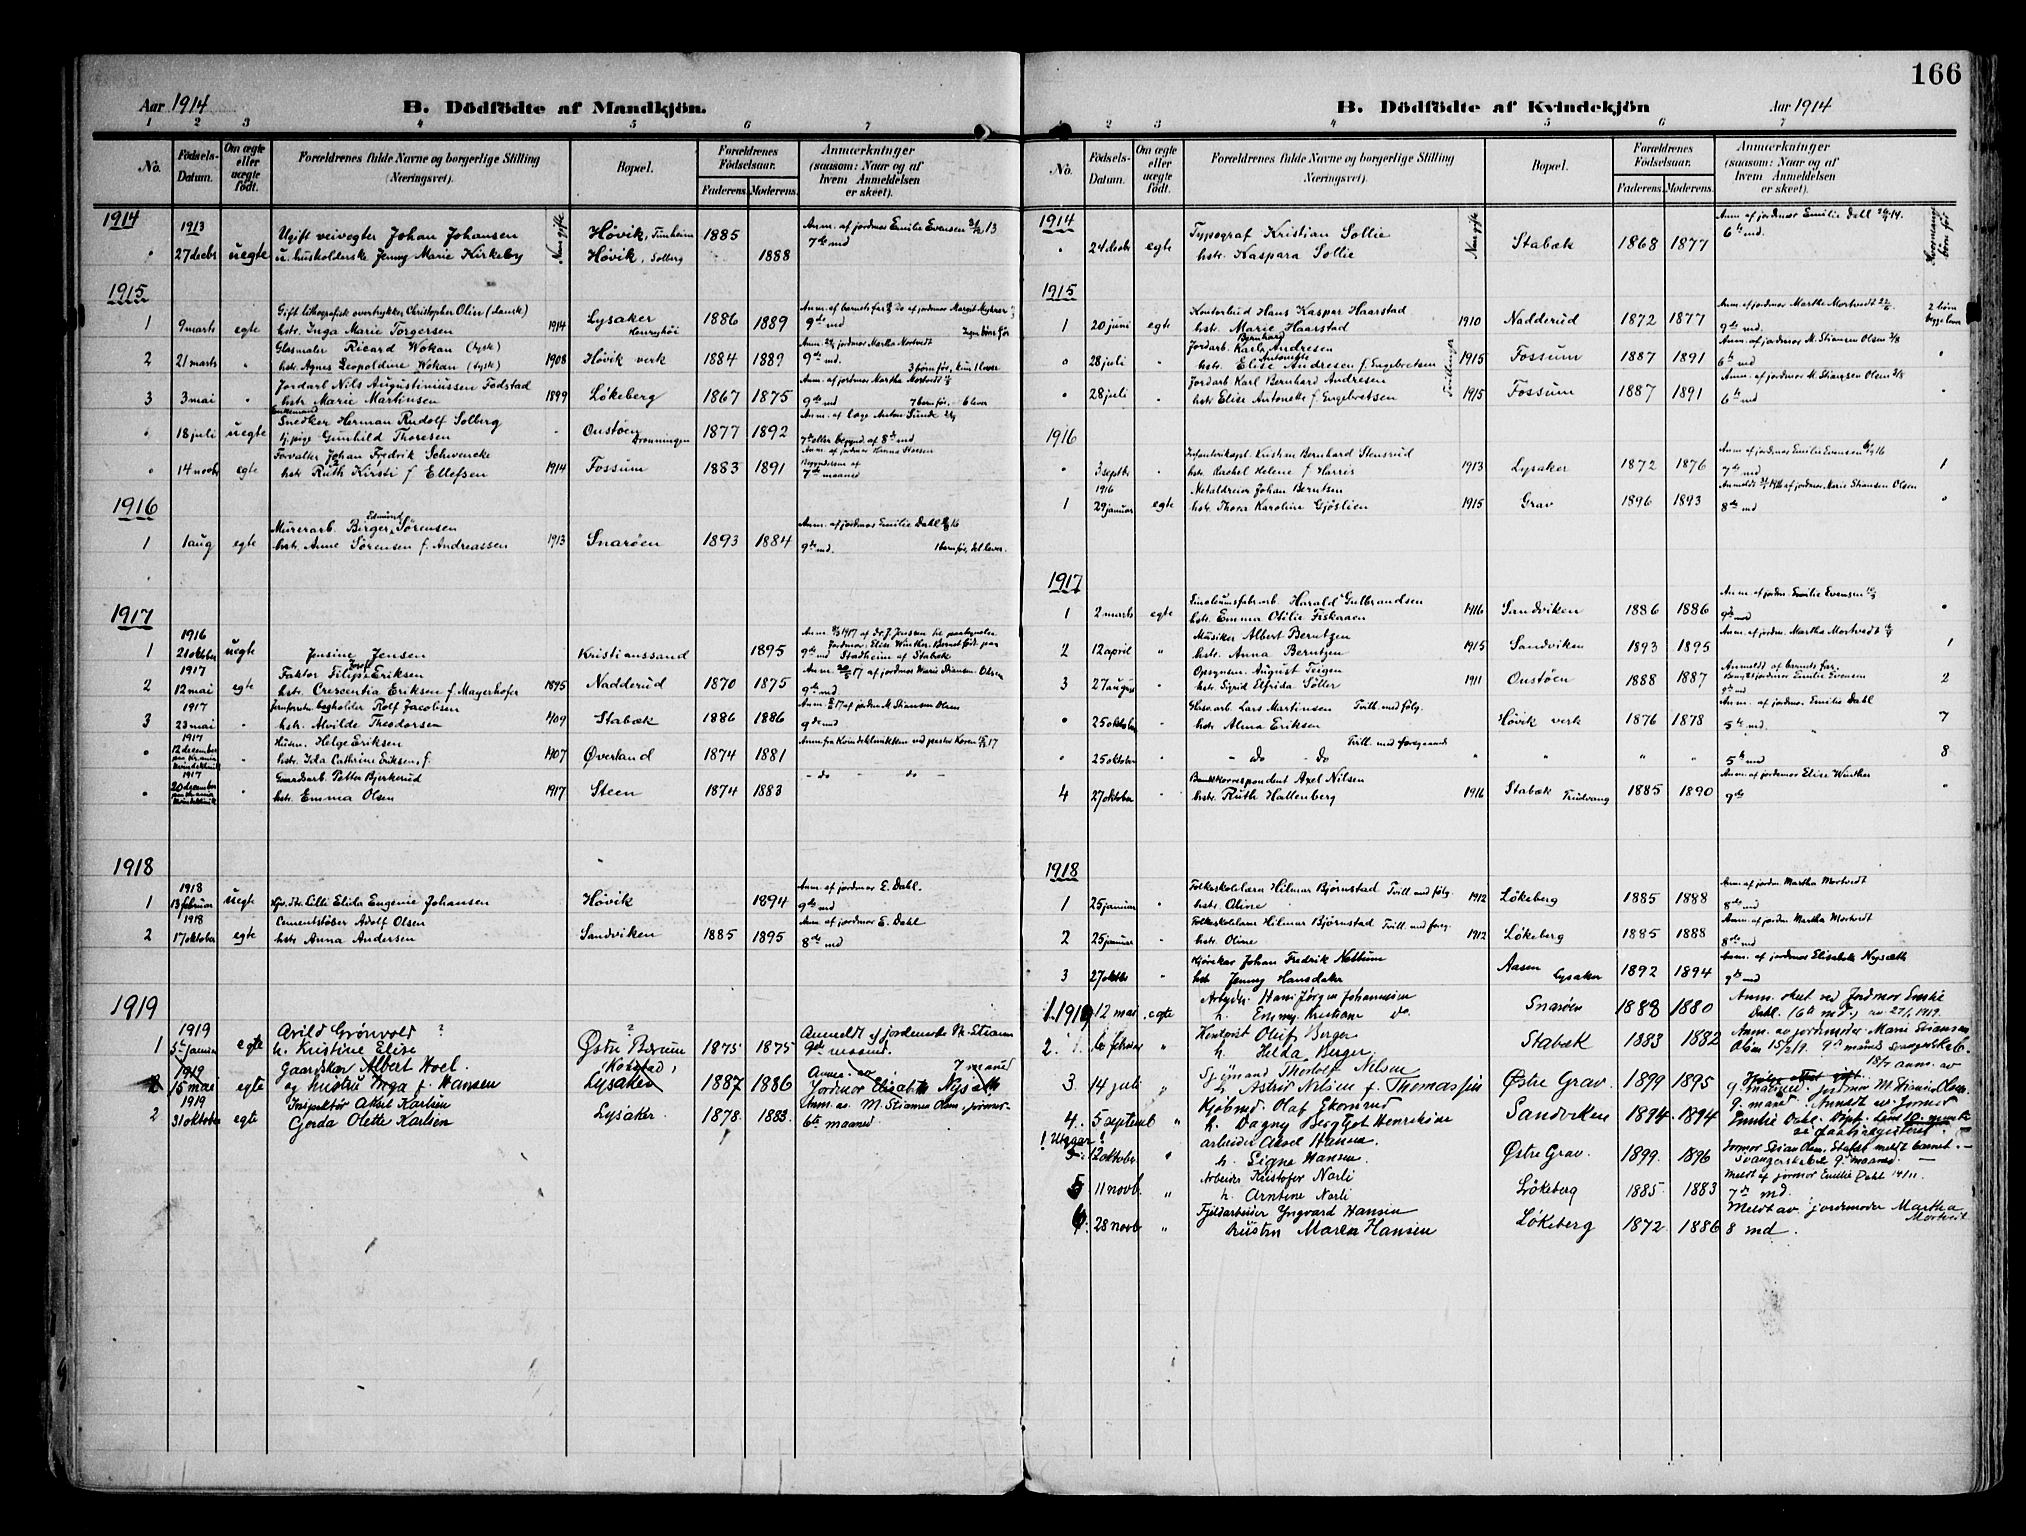 166
Aar 1914
B. Dödfödte af Mandkjön.
1 2 3 4 5 6 7
No.
Födsels-Datum.
Om ægte eller uægte födt.
Forældrenes fulde Navne og borgerlige Stilling (Næringsvei).
Bopæl.
Forældrenes Födselsaar.
Faderens. Moderens.
Anmærkninger (saasom: Naar og af hvem Anmeldelsen er skeet).
1914
1913
Ugift veivogter Johan Johansen Høvik, 1885 Anm. af jordmor Emilie Evensen 13
27 decbr uegte u. husholderske Jenny Marie Kirkeby Høvik, Solberg 1888 7de md
1915
Gift lithografisk overtrykker Christopher Olin (dansk)
1 9 marts egte hstr. Inga Marie Torgersen 1914 Lysaker 1886 1889 9de md
Glasmaler Ricard Wokan (tysk) Anm. jordmor Martha Mortvedt
2 21 marts " hstr. Agnes Leopoldine Wokan (tysk) 1908 Høvik verk 1884 1889 9de md 3 børn før, kun 1 lever
Jordarb. Nils Augustiniussen Todstad Anm. af jordmor Martha Mortvedt
3 3 mai " hstr. Marie Martinsen 1899 Løkeberg 1867 1875 9de md 7 børn før, - 6 lever
Enkemand
Snedker Herman Rudolf Solberg Anm. af læge Anton Sunde
18 juli uegte tj. pige Gunhild Thoresen Oustøen Dronningen 1877 1892 7de eller begynd. af 8de md
Forvalter Johan Fredrik Schwencke
14 novbr egte hstr. Ruth Kirsti f. Ellefsen 1914 Fossum 1883 1891 7de maaned
1916
Murerarb. Birger Edmund Sørensen Anm. af jordmor Emilie Dahl 16
1 1 aug egte hstr. Anne Sørensen f. Andreassen 1913 Snarøen 1893 1884 9de md. 1 barn før, det lever.
1917
1916
1 21 oktober uegte Jensine Jensen Kristianssand 1895 9de md Stadheim af Stabæk
1917 Faktor Filip Josef Eriksen
2 12 mai egte hstr. Crescentia Eriksen f. Mayerhofer 1895 Nadderud 1870 1875 9de md
1917 Jernforretn. bogholder Rolf Jacobsen
3 23 mai " hstr. Alvilde Theodorsen 1909 Stabæk 1886 1886 9de md
1917 Husm. Helge Eriksen Anm. fra Kvindeklinikken ved pastor Koren 17
12 december paa Kr.ania Kvindeklinik " hstr. Ida Cathrine Eriksen, f. 1907 Øverland 1874 1881
1917 Gaardsarb. Petter Bjerkerud - do - do -
20 december paa Kr.ania Kvindeklinik " hstr. Emma Olsen 1917 Steen 1874 1883
1918
1918 Anm. af jordmor E. Dahl.
1 13 februar uegte Lilli Elida Eugenie Johansen Høvik 1894 9de md
1918 Cementstøber Adolf Olsen Anm. af jordmor E. Dahl
2 17 oktober egte hstr. Anna Andersen Sandviken 1885 1895 8de md
1919
1919 Arild Grönvold ? ? Anmeldt af jordemoder M. Stiansen
1 5te januar egte h. Kristine Elise Østre Bærum 1875 1875 9de maaned.
1919 Gaardskar Albert Hoel (Kolstad) 7 maaned
2 15 mai egte og hustru Inga f. Hansen Lysaker 1887 1886 Jordmor Elisabeth Nysæth
1919 Inspektør Aksel Karlsen
2 31 oktober egte Gjorda Olette Karlsen Lysaker. 1878. 1883. 6te maaned
B. Dödfödte af Kvindekjön
Aar 1914
1 2 3 4 5 6 7
No.
Födsels-Datum.
Om ægte eller uægte födt.
Forældrenes fulde Navne og borgerlige Stilling (Næringsvei).
Bopæl.
Forældrenes Födselsaar.
Faderens. Moderens.
Anmærkninger (saasom: Naar og af hvem Anmeldelsen er skeet).
1914 Typograf Kristian Sollie Anm. af jordmor Emilie Dahl 14.
24 decbr egte hstr. Kaspara Sollie Stabæk 1868 1877 6te md.
1915
Kontorbud Hans Kaspar Haarstad Anm. af jordmor Martha Mortvedt 2 børn begge lever
1 20 juni egte hstr. Marie Haarstad 1910 Nadderud 1872 1877 9de md
Jordarb. Karl Bernhard Andresen Anm. af jordmor M. Stiansen Olsen
28 juli " hstr. Elise Antonette Andresen f. Engebretsen 1915 Fossum 1887 1891 6te md
Tvillinger
Jordarb Karl Bernhard Andresen Anm. af jordmor M. Stiansen Olsen
28 juli " hstr. Elise Antonette f. Engebretsen 1915 Fossum 1887 1891 6te md
1916
Infanterikapt. Kristian Bernhard Stensrud Anm. af jordmor Emilie Evensen 1916
3 septbr " hstr. Rachel Helene f. Harris 1913 Lysaker 1872 1876 7de md 1
1916 Metaldreier Johan Berntsen
1 29 januar egte hstr. Thora Karoline Gjøslien 1915 Grav 1896 1893 8de md
1917
Linoleumsfabr. arb. Harald Gulbrandsen Anm. af jordm. Emilie Evensen
1 2 marts egte hstr. Emma Otilie Fiskaaen 1916 Sandviken 1886 1886 9de md
Musiker Albert Berntzen Anm. af jordm. Martha Mortvedt
2 12 april " hstr. Anna Berntzen 1915 Sandviken 1893 1895 1
Opsynsm. August Teigen Anmeldt af barnets far.
3 27 august " hstr. Sigrid Elfrida Søller 1911 Oustøen 1888 1887 9de md 2
Glasm. arb. Lars Martinsen Tvill. med følg. Anm. af jordmor Emilie Dahl
25 oktober " hstr. Alma Eriksen Høvik verk 1876 1878 5te md. 7
Tvill. med foregaaende
25 oktober " - do - do " " " 5te md 8
Bankkorrespondent Axel Nilsen Anm. af jordmor Elise Winther
4 27 oktober " hstr. Ruth Hallenberg 1916 Stabæk Trudvang 1885 1890 9de
1918
Folkeskolelærer Hilmar Bjørnstad Tvill. med følg. Anm. af jordm. Martha Mortvedt
1 25 januar " hstr. Oline 1912 Løkeberg 1885 1888 8de md
Folkeskolelærer Hilmar Bjørnstad Tvill. med foreg. Anm. af jordm. Martha Mortvedt
2 25 januar " hstr. Oline 1912 Løkeberg 1885 1888 8de md
Kjørekar Johan Fredrik Nettum Anm. af jordmor Elisabeth Nysæth
3 27 oktbr " hstr. Jenny Hansdatter Aasen Lysaker 1892 1894 9de md
Arbeider Hans Jørgen Johannesen Anm. skeet ved Jordmor Emilie
1. 1919 12 mai egte h. Emmy Kristiane do. Snarøen 1883 1880 Dahl. (6te md.)
Kontorist Oluf Berger Anm. av jordmoder Marie Stiansen
2. 6 februar " h. Helda Berger Stabæk 1883 1882 Olsen 15/2 19. 9de maaned svangerskab.
Sjömand Thorolf Nielsen
3. 14 juli " h. Astrid Nielsen f. Thomassen Østre Grav. 1899 1895 Jordmor M. Stiansen Olsen.
Kjøbmd. Olaf Ekornrud
4. 5 septemb " h. Dagny Bergljot Henriksen Sandviken 1894 1894
! Utgaar ! arbeider Aksel Hansen.
5. 12 oktober " h. Signe Hansen. Østre Grav. 1899. 1896 Svangerskab 9. maaned.
Arbeider Kristofer Narli Meldt af jormor Emilie Dahl 14/11.
5 11 novb. " h. Arntine Narli Løkeberg 1885. 1883 7de md.
Fjeldarbeider Yngvard Hansen Meldt av jordemoder Martha Mortvedt
6. 28 novb " hustru Maren Hansen Løkeberg 1872. 1886 8 md.